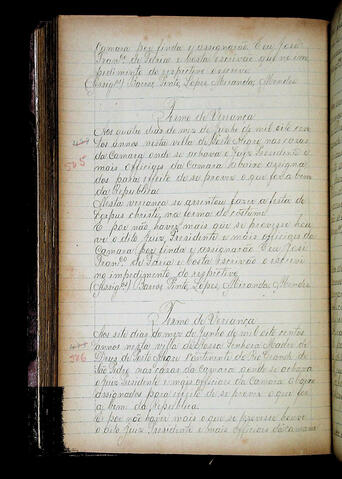 Camara por finda y assignarão. Eu José
Fran.co de Faria e Costa escrivão que no im
pedimento do respectivo o escrevi
(Assig.s) Barros, Pinto, Lopes, Miranda, Mendes
Termo de Veriança
505
Aos quatro dias do mez de Junho de mil oito cen
tos annos nesta villa de Porto Alegre nas casas
da Camara onde se achava o Juiz Presidente e
mais officiaes da Camara abaixo assigna
dos para effeito de se prover o que fosse a bem
da Republica
Nesta veriança se assentou fazer a festa de
Corpus christy na forma do costume
E por não haver mais que se provesse hou
ve o dito Juiz Presidente e mais officiaes da
Camara por finda e assignarão. Eu José
Fran.co de Faria e Costa Escrivão o escrevi
no impedimento do respectivo
(Assig.s) Barros Pinto, Lopes, Miranda, Mendes
Termo de Veriança
506
Aos sete dias do mez de Junho de mil oito centos
annos nesta villa de Nossa Senhora Madre de
Deus de Porto Alegre Continente do Rio Grande de
São Pedro nas casas da Camara aonde se achava
o Juiz Presidente e mais officiaes da Camara abaixo
assignados para effeito de se prover o que for
a bem da Republica.
E por não haver mais o que se provesse houve
o dito Juiz Presidente e mais officiaes da Camara